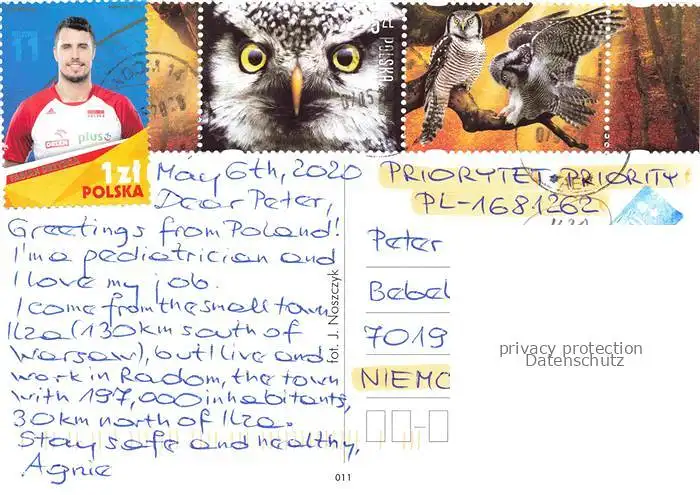 11
ORLEN
plus
FABIAN DRZYZGA
1 zł
POLSKA
May 6th, 2020
Dear Peter,
Greetings from Poland!
I'm a pediatrician and
I love my job.
I come from the small town
Ilza (130km south of
Warsaw), but I live and
work in Radom, the town
with 197,000 inhabitants,
30km north of Ilza.
Stay safe and healthy,
Agnie
fot. J. Noszczyk
011
PRIORYTET PRIORITY
PL-1681262
Peter
Bebel
7019
NIEMC
privacy protection
Datenschutz